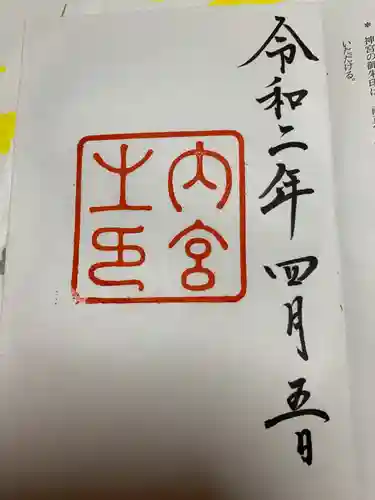 神宮の御朱印は
いただける。
令和二年四月五日
内宮
之印